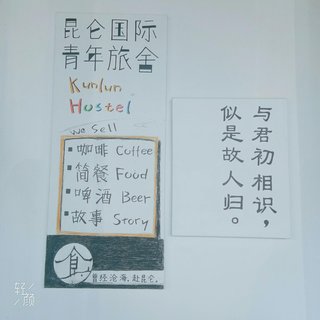 昆仑国际
青年旅舍
Kunlun
Hostel
We Sell
咖啡 Coffee
简餐 Food
啤酒 Beer
故事 Story
食
曾经沧海,赴昆仑.
与君初相识，
似是故人归。
轻颜